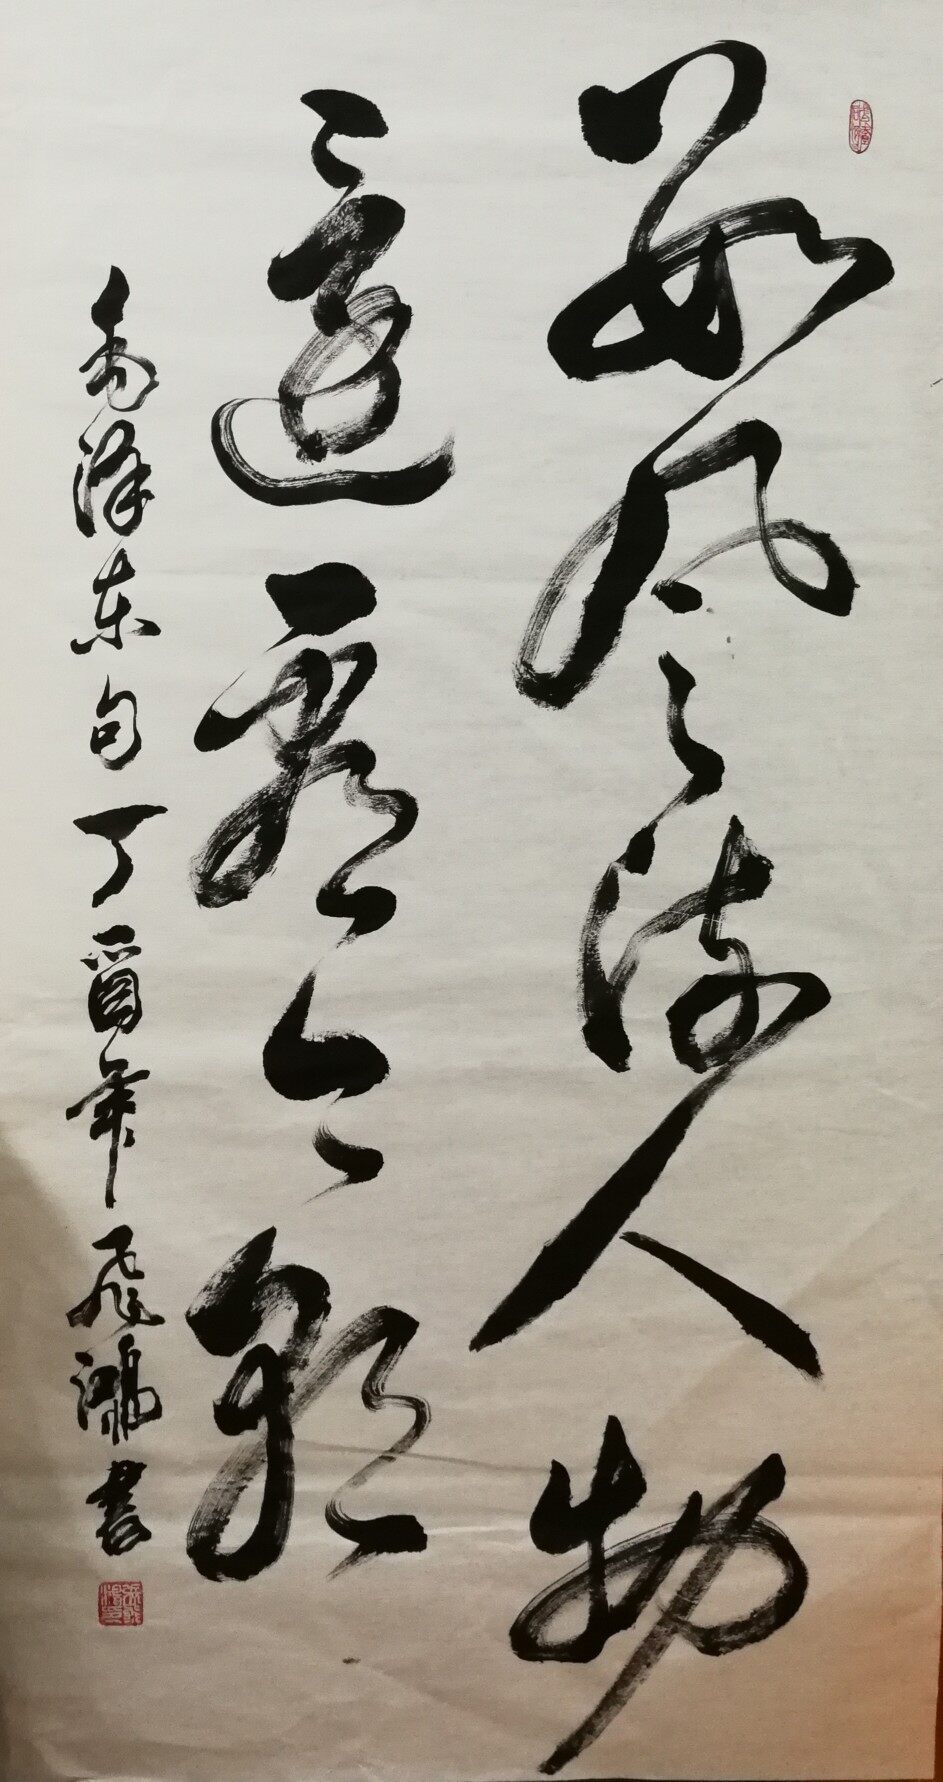 数风流人物
还看今朝
毛泽东句丁酉年飛鴻書